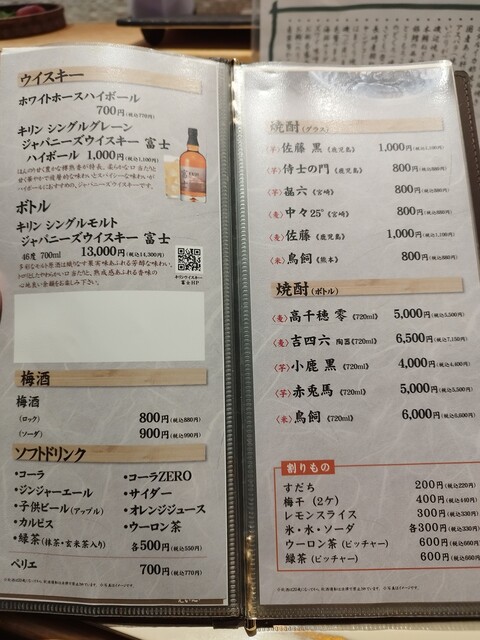 ウイスキー
ホワイトホースハイボール
700円(税込770円)
キリン シングルグレーン
ジャパニーズウイスキー 富士
ハイボール 1,000円(税込1,100円)
ボトル
キリン シングルモルト
ジャパニーズウイスキー 富士
46度 700ml 13,000円(税込14,300円)
キリンウイスキー
富士HP
梅酒
梅酒
(ロック) 800円(税込880円)
(ソーダ) 900円(税込990円)
ソフトドリンク
・コーラ ・コーラZERO
・ジンジャーエール ・サイダー
・子供ビール(アップル) ・オレンジジュース
・カルピス ・ウーロン茶
・緑茶(抹茶・玄米茶入り) 各500円(税込550円)
ペリエ 700円(税込770円)
焼酎(グラス)
〈芋〉佐藤 黒《鹿児島》 1,000円(税込1,100円)
〈芋〉侍士の門《鹿児島》 800円(税込880円)
〈芋〉㐂六《宮崎》 800円(税込880円)
〈麦〉中々25°《宮崎》 800円(税込880円)
〈麦〉佐藤《鹿児島》 1,000円(税込1,100円)
〈米〉鳥飼《熊本》 800円(税込880円)
焼酎(ボトル)
〈麦〉高千穂 零《720ml》 5,000円(税込5,500円)
〈麦〉吉四六 陶器《720ml》 6,500円(税込7,150円)
〈芋〉小鹿 黒《720ml》 4,000円(税込4,400円)
〈芋〉赤兎馬《720ml》 5,000円(税込5,500円)
〈米〉鳥飼《720ml》 6,000円(税込6,600円)
割りもの
すだち 200円(税込220円)
梅干(2ケ) 400円(税込440円)
レモンスライス 300円(税込330円)
氷・水・ソーダ 各300円(税込330円)
ウーロン茶(ピッチャー) 600円(税込660円)
緑茶(ピッチャー) 600円(税込660円)